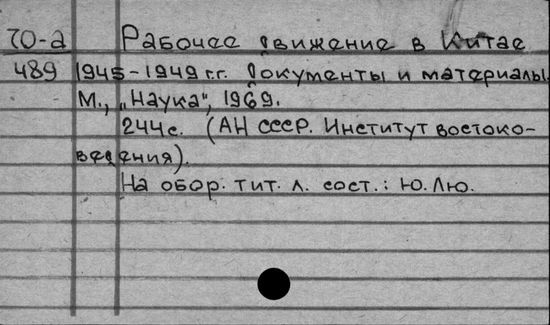 70-2 Рабочее движение в Китае
489 1945-1949 г.г. Документы и материалы.
М., „Наука", 1969.
244 с. (АН СССР. Институт востоко-
ведения).
На обор. тит. л. сост.: Ю. Лю.